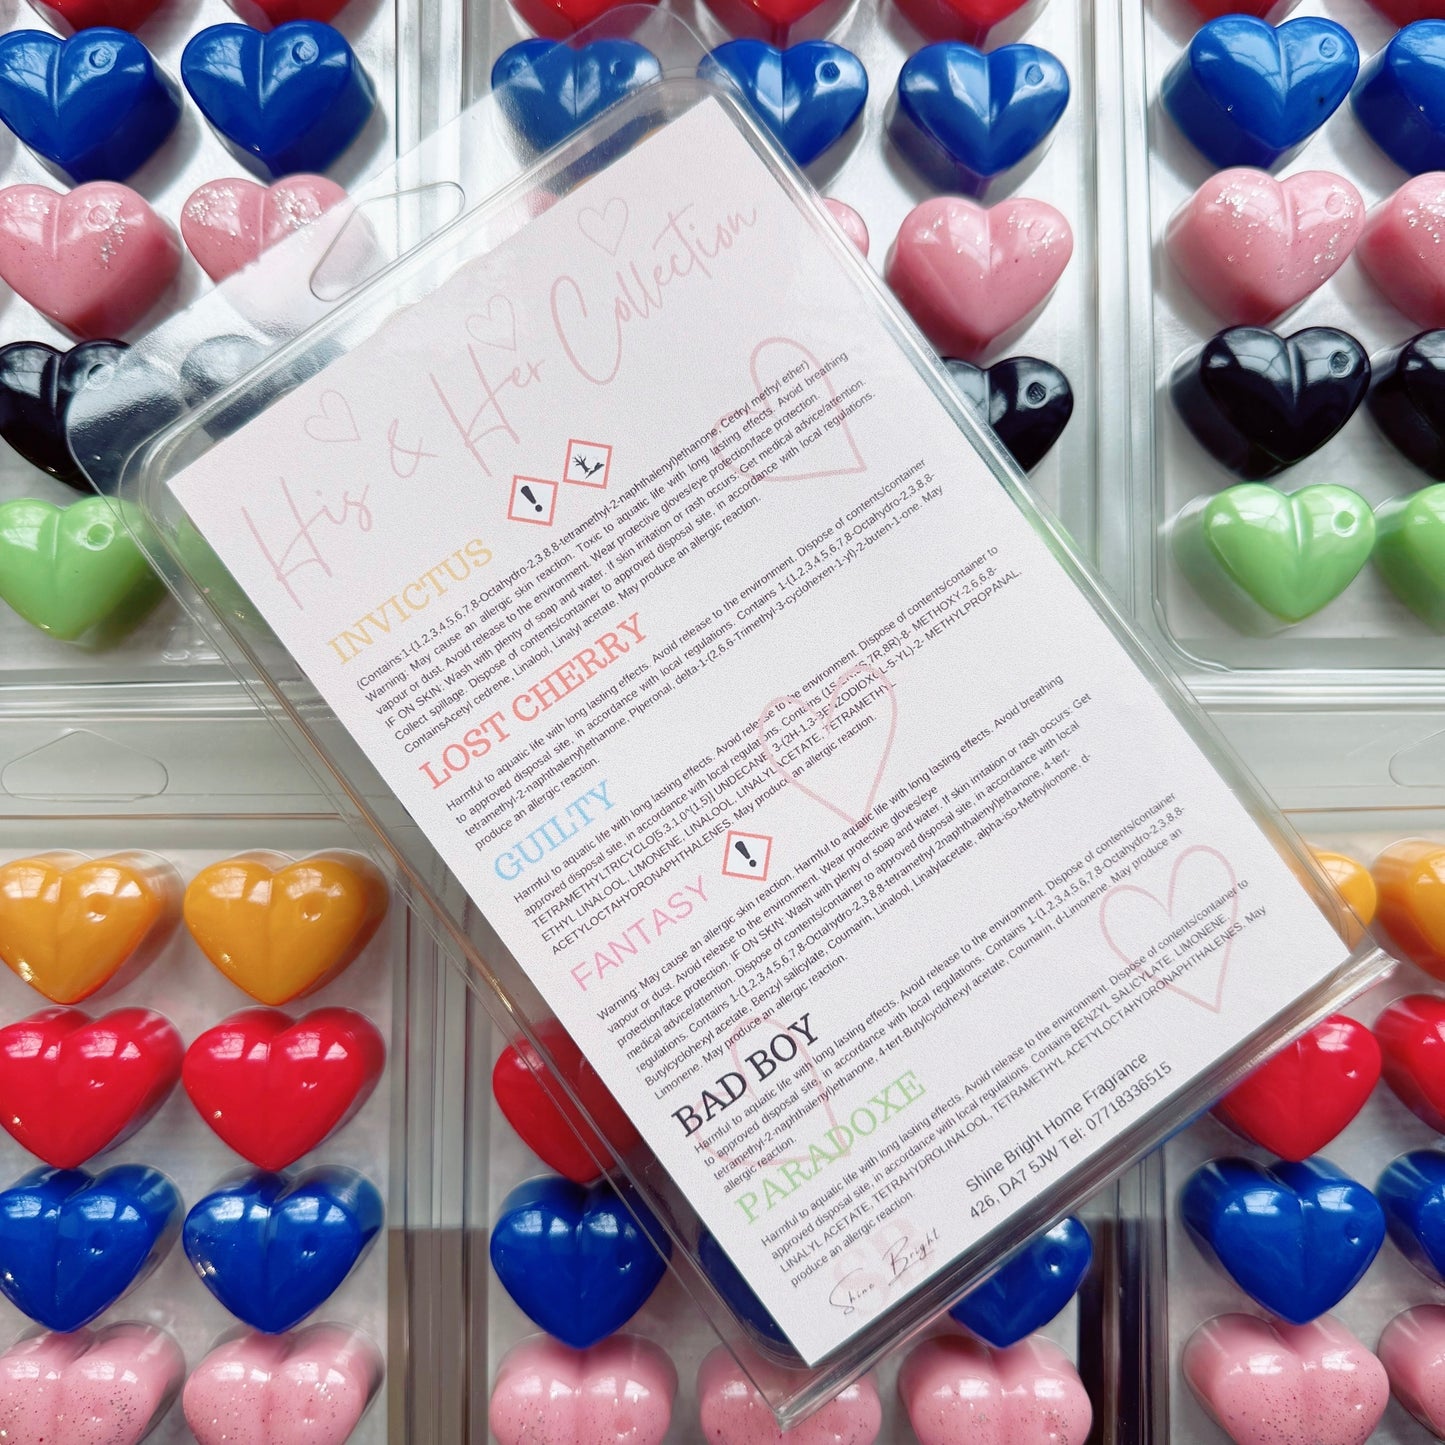 His & Her Collection
INVICTUS
(Contains:1-(1,2,3,4,5,6,7,8-Octahydro-2,3,8,8-tetramethyl-2-naphthalenyl)ethanone, Cedryl methyl ether)
Warning: May cause an allergic skin reaction. Toxic to aquatic life with long lasting effects. Avoid breathing
vapour or dust. Avoid release to the environment. Wear protective gloves/eye protection/face protection.
IF ON SKIN: Wash with plenty of soap and water. If skin irritation or rash occurs: Get medical advice/attention.
Collect spillage. Dispose of contents/container to approved disposal site, in accordance with local regulations.
ContainsAcetyl cedrene, Linalool, Linalyl acetate. May produce an allergic reaction.
LOST CHERRY
Harmful to aquatic life with long lasting effects. Avoid release to the environment. Dispose of contents/container
to approved disposal site, in accordance with local regulations. Contains 1-(1,2,3,4,5,6,7,8-Octahydro-2,3,8,8-
tetramethyl-2-naphthalenyl)ethanone, Piperonal, delta-1-(2,6,6-Trimethyl-3-cyclohexen-1-yl)-2-buten-1-one. May
produce an allergic reaction.
GUILTY
Harmful to aquatic life with long lasting effects. Avoid release to the environment. Dispose of contents/container to
approved disposal site, in accordance with local regulations. Contains 7R,8R)-8- METHOXY-2,6,6,8-
TETRAMETHYLTRICYCLO[5.3.1.0^(1,5)] UNDECANE, -5-YL)-2- METHYLPROPANAL,
ETHYL LINALOOL, LIMONENE, LINALOOL, LINALYL ACETATE, TETRAMETHYL
ACETYLOCTAHYDRONAPHTHALENES. May produce an allergic reaction.
FANTASY
Warning: May cause an allergic skin reaction. Harmful to aquatic life with long lasting effects. Avoid breathing
vapour or dust. Avoid release to the environment. Wear protective gloves/eye
protection/face protection. IF ON SKIN: Wash with plenty of soap and water. If skin irritation or rash occurs: Get
medical advice/attention. Dispose of contents/container to approved disposal site, in accordance with local
regulations. Contains 1-(1,2,3,4,5,6,7,8-Octahydro-2,3,8,8-tetramethyl 2naphthalenyl)ethanone, 4-tert-
Butylcyclohexyl acetate, Benzyl salicylate, Coumarin, Linalool, Linalylacetate, alpha-iso-Methylionone, d-
Limonene. May produce an allergic reaction.
BAD BOY
Harmful to aquatic life with long lasting effects. Avoid release to the environment. Dispose of contents/container
to approved disposal site, in accordance with local regulations. Contains 1-(1,2,3,4,5,6,7,8-Octahydro-2,3,8,8-
tetramethyl-2-naphthalenyl)ethanone, 4-tert-Butylcyclohexyl acetate, Coumarin, d-Limonene. May produce an
allergic reaction.
PARADOXE
Harmful to aquatic life with long lasting effects. Avoid release to the environment. Dispose of contents/container to
approved disposal site, in accordance with local regulations. Contains BENZYL SALICYLATE, LIMONENE,
LINALYL ACETATE, TETRAHYDROLINALOOL, TETRAMETHYL ACETYLOCTAHYDRONAPHTHALENES. May
produce an allergic reaction.
Shine Bright Home Fragrance
426, DA7 5JW Tel: 07718336515
Shine Bright